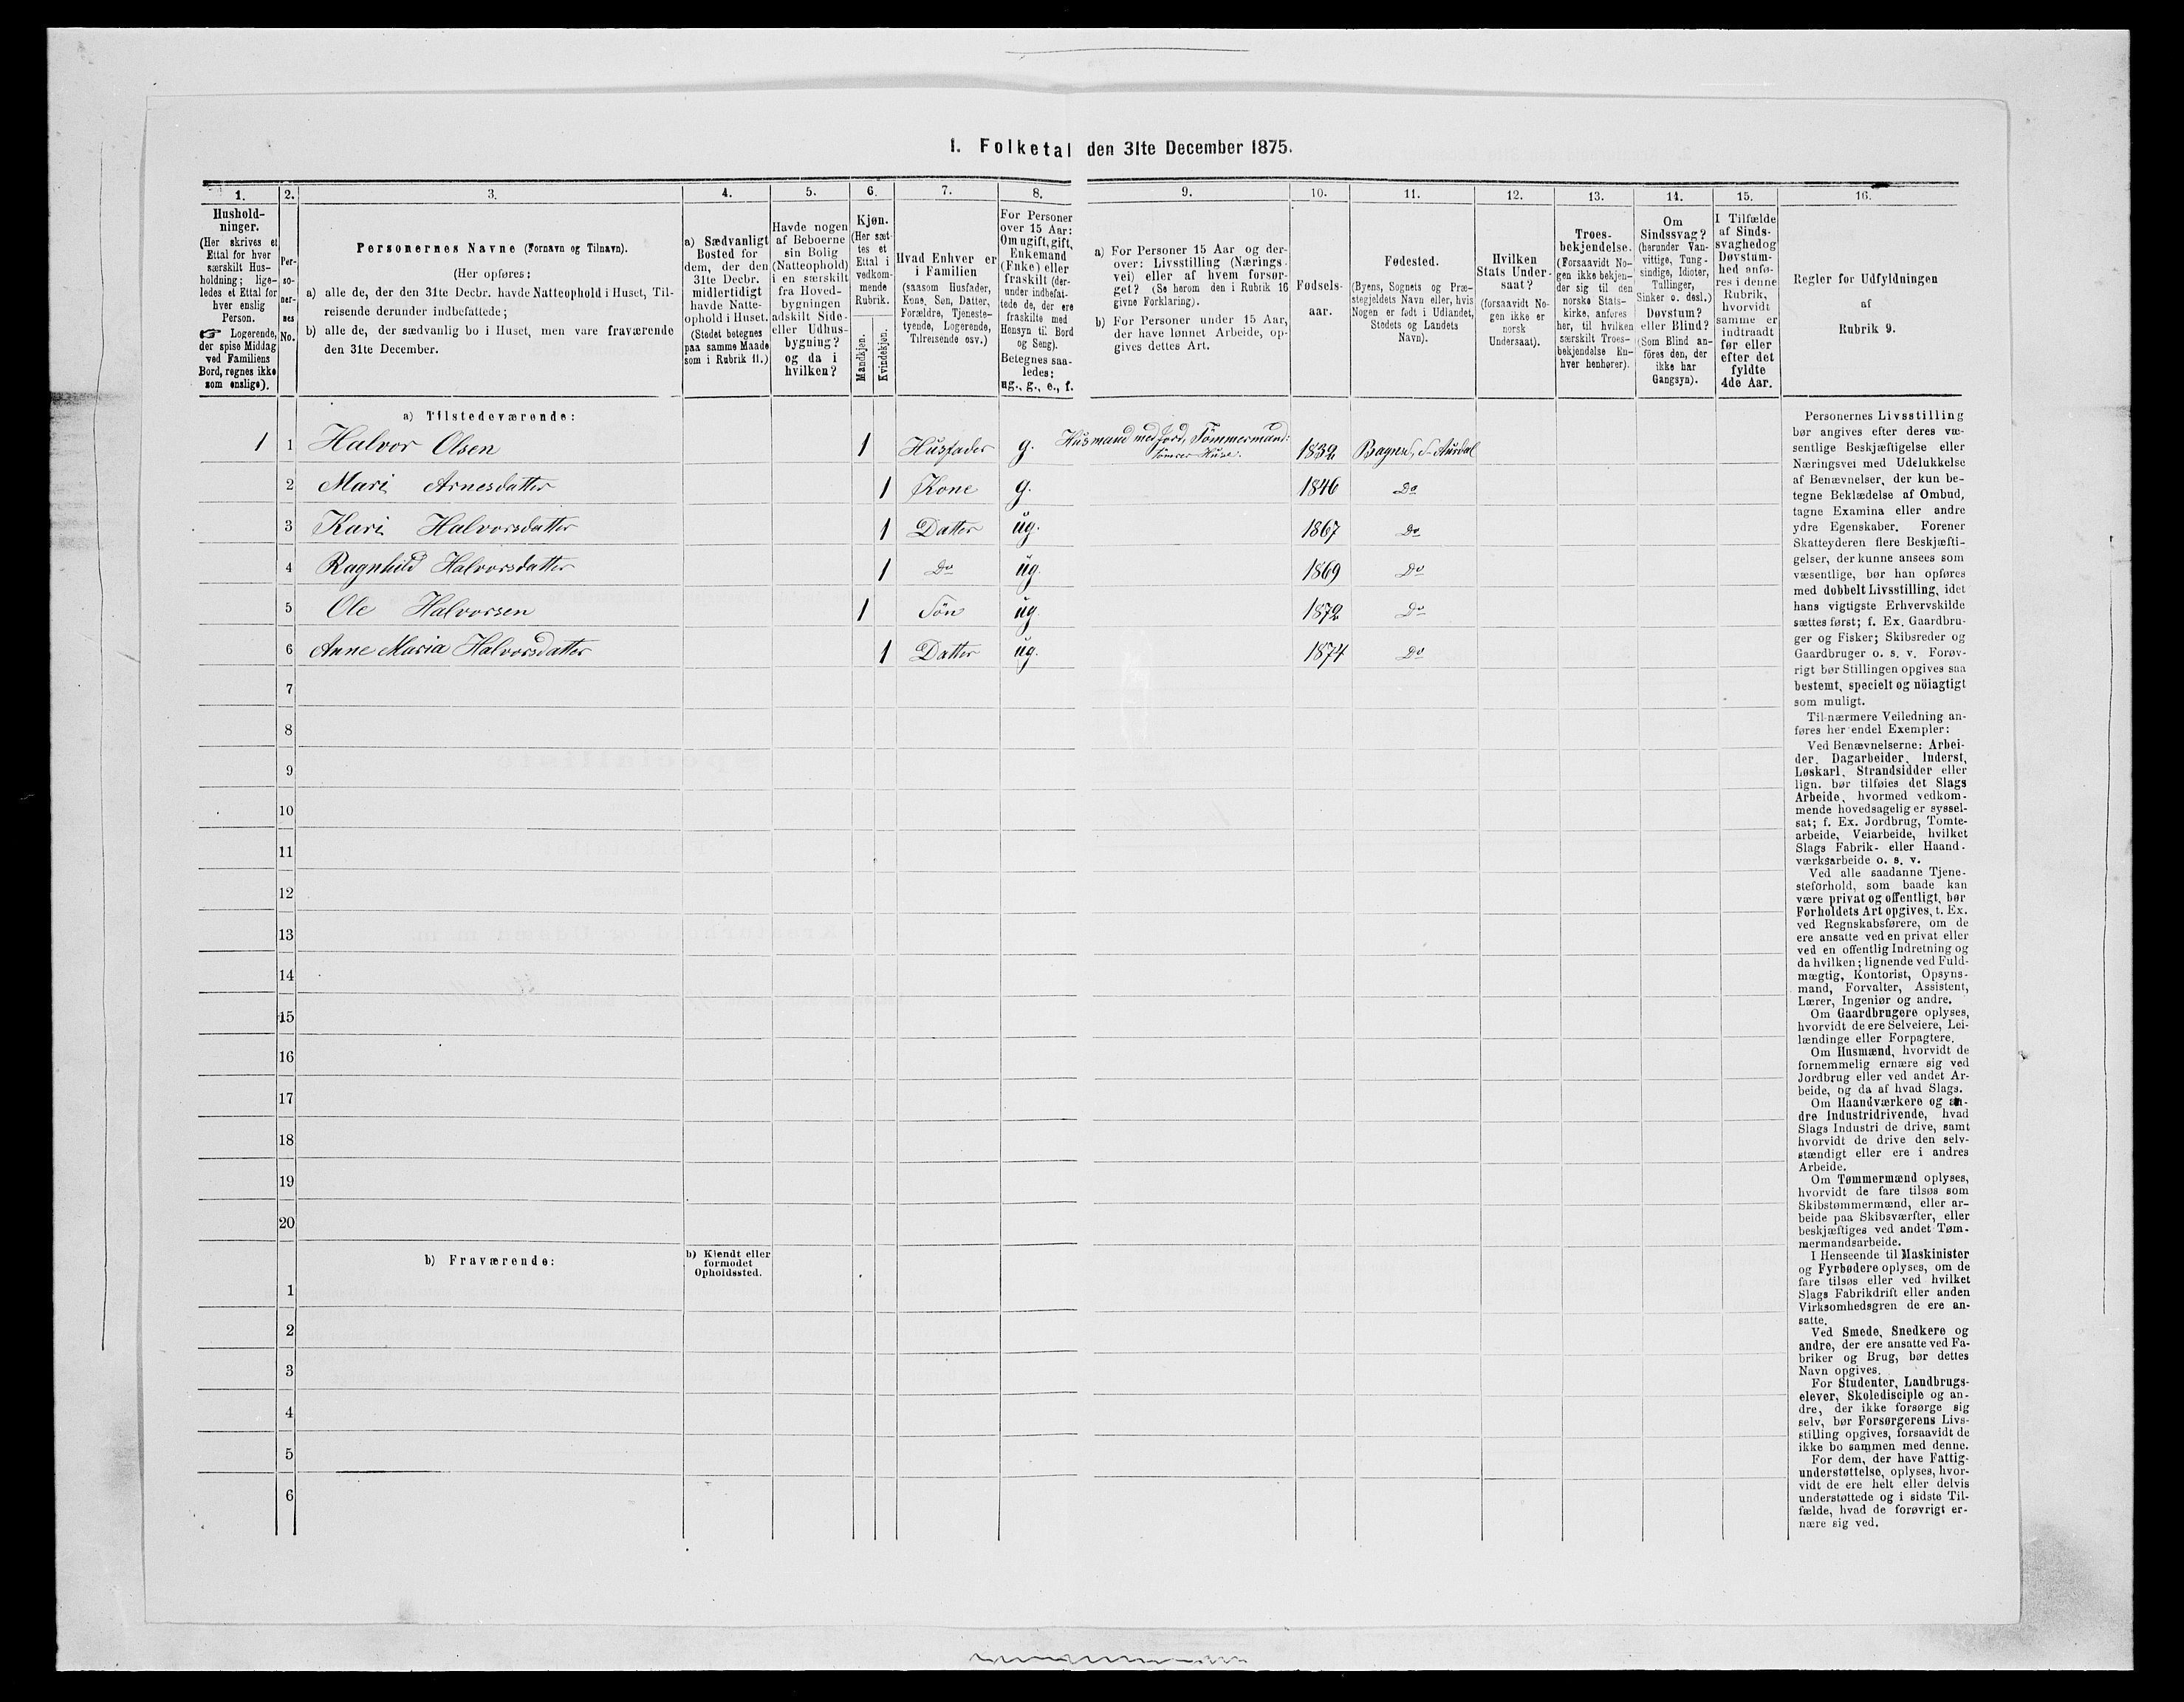 1. Folketal den 31te December 1875.
1.
2.
3.
4.
5.
6.
7.
8.
9.
10.
11.
12.
13.
14.
15.
16.
Hushold-
ninger.
(Her skrives et
Ettal for hver
særskilt Hus-
holdning; lige-
ledes et Ettal for
hver enslig
Person.
☞ Logerende,
der spise Middag
ved Familiens
Bord, regnes ikke
som enslige).
Per-
so-
ner-
nes
No.
Personernes Navne (Fornavn og Tilnavn).
(Her opføres:
a) alle de, der den 31te Decbr. havde Natteophold i Huset, Til-
reisende derunder indbefattede;
b) alle de, der sædvanlig bo i Huset, men vare fraværende
den 31te December.
a) Sædvanligt
Bosted for
dem, der den
31te Decbr.
midlertidigt
havde Natte-
ophold i Huset.
(Stedet betegnes
paa samme Maade
som i Rubrik 11.)
Havde nogen
af Beboerne
sin Bolig
(Natteophold)
i en særskilt
fra Hoved-
bygningen
adskilt Side-
eller Udhus-
bygning?
og da i
hvilken?
Kjøn.
(Her sæt-
tes et
Ettal i
vedkom-
mende
Rubrik.
Mandkjøn.
Kvindekjøn.
Hvad Enhver er
i Familien
(saasom Husfader,
Kone, Søn, Datter,
Forældre, Tjeneste-
tyende, Logerende,
Tilreisende osv.)
For Personer
over 15 Aar:
Om ugift, gift,
Enkemand
(Enke) eller
fraskilt (der-
under indbefat-
tede de, der ere
fraskilte med
Hensyn til Bord
og Seng).
Betegnes saa-
ledes:
ug., g., e., f.
a) For Personer 15 Aar og der-
over: Livsstilling (Nærings-
vei) eller af hvem forsør-
get? (Se herom den i Rubrik 16
givne Forklaring).
b) For Personer under 15 Aar,
der have lønnet Arbeide, op-
gives dettes Art.
Fødsels-
aar.
Fødested.
(Byens, Sognets og Præ-
stegjeldets Navn eller, hvis
Nogen er født i Udlandet,
Stedets og Landets
Navn).
Hvilken
Stats Under-
saat?
(forsaavidt No-
gen ikke er
norsk
Undersaat).
Troes-
bekjendelse.
(Forsaavidt No-
gen ikke bekjen-
der sig til den
norske Stats-
kirke, anføres
her, til hvilken
særskilt Troes-
bekjendelse En-
hver henhører).
Om
Sindssvag?
(herunder Van-
vittige, Tung-
sindige, Idioter,
Tullinger,
Sinker o. desl.)
Døvstum?
eller Blind?
(Som Blind an-
føres den, der
ikke har
Gangsyn).
I Tilfælde
af Sinds-
svaghed og
Døvstum-
hed anfø-
res i denne
Rubrik,
hvorvidt
samme er
indtraadt
før eller
efter det
fyldte
4de Aar.
Regler for Udfyldningen
af
Rubrik 9.
a) Tilstedeværende:
1 1 Halvor Olsen 1 Husfader g. Husmand med Jord, Tømmermand: 1832 Bagns S. Aurdal
tømrer Huse.
2 Mari Arnesdatter 1 Kone g. 1846 Do
3 Kari Halvorsdatter 1 Datter ug. 1867 Do
4 Ragnhild Halvorsdatter 1 Do ug. 1869 Do
5 Ole Halvorsen 1 Søn ug. 1872 Do
6 Anne Maria Halvorsdatter 1 Datter ug. 1874 Do
7
8
9
10
11
12
13
14
15
16
17
18
19
20
b) Fraværende:
b) Kjendt eller
formodet
Opholdssted.
1
2
3
4
5
6
Personernes Livsstilling
bør angives efter deres væ-
sentlige Beskjæftigelse eller
Næringsvei med Udelukkelse
af Benævnelser, der kun be-
tegne Beklædelse af Ombud,
tagne Examina eller andre
ydre Egenskaber. Forener
Skatteyderen flere Beskjæfti-
gelser, der kunne ansees som
væsentlige, bør han opføres
med dobbelt Livsstilling, idet
hans vigtigste Erhvervskilde
sættes først; f. Ex. Gaardbru-
ger og Fisker; Skibsreder og
Gaardbruger o. s. v. Forøv-
rigt bør Stillingen opgives saa
bestemt, specielt og nöiagtigt
som muligt.
Til nærmere Veiledning an-
føres her endel Exempler:
Ved Benævnelserne: Arbei-
der, Dagarbeider, Inderst,
Løskarl, Strandsidder eller
lign. bør tilføies det Slags
Arbeide, hvormed vedkom-
mende hovedsagelig er syssel-
sat; f. Ex. Jordbrug, Tomte-
arbeide, Veiarbeide, hvilket
Slags Fabrik- eller Haand-
værksarbeide o. s. v.
Ved alle saadanne Tjene-
steforhold, som baade kan
være privat og offentligt, bør
Forholdets Art opgives, t. Ex.
ved Regnskabsførere, om de
ere ansatte ved en privat eller
ved en offentlig Indretning og
da hvilken; lignende ved Fuld-
mægtig, Kontorist, Opsyns-
mand, Forvalter, Assistent,
Lærer, Ingeniør og andre.
Om Gaardbrugere oplyses,
hvorvidt de ere Selveiere, Lei-
lændinge eller Forpagtere.
Om Husmænd, hvorvidt de
fornemmelig ernære sig ved
Jordbrug eller ved andet Ar-
beide, og da af hvad Slags.
Om Haandværkere og an-
dre Industridrivende, hvad
Slags Industri de drive, samt
hvorvidt de drive den selv-
stændigt eller ere i andres
Arbeide.
Om Tømmermænd oplyses,
hvorvidt de fare tilsøs som
Skibstømmermænd, eller ar-
beide paa Skibsværfter, eller
beskjæftiges ved andet Tøm-
mermandsarbeide.
I Henseende til Maskinister
og Fyrbødere oplyses, om de
fare tilsøs eller ved hvilket
Slags Fabrikdrift eller anden
Virksomhedsgren de ere an-
satte.
Ved Smede, Snedkere og
andre, der ere ansatte ved Fa-
briker og Brug, bør dettes
Navn opgives.
For Studenter, Landbrugs-
elever, Skoledisciple og an-
dre, der ikke forsørge sig
selv, bør Forsørgerens Livs-
stilling opgives, forsaavidt de
ikke bo sammen med denne.
For dem, der have Fattig-
understøttelse, oplyses, hvor-
vidt de ere helt eller delvis
understøttede og i sidste Til-
fælde, hvad de forøvrigt er-
nære sig ved.